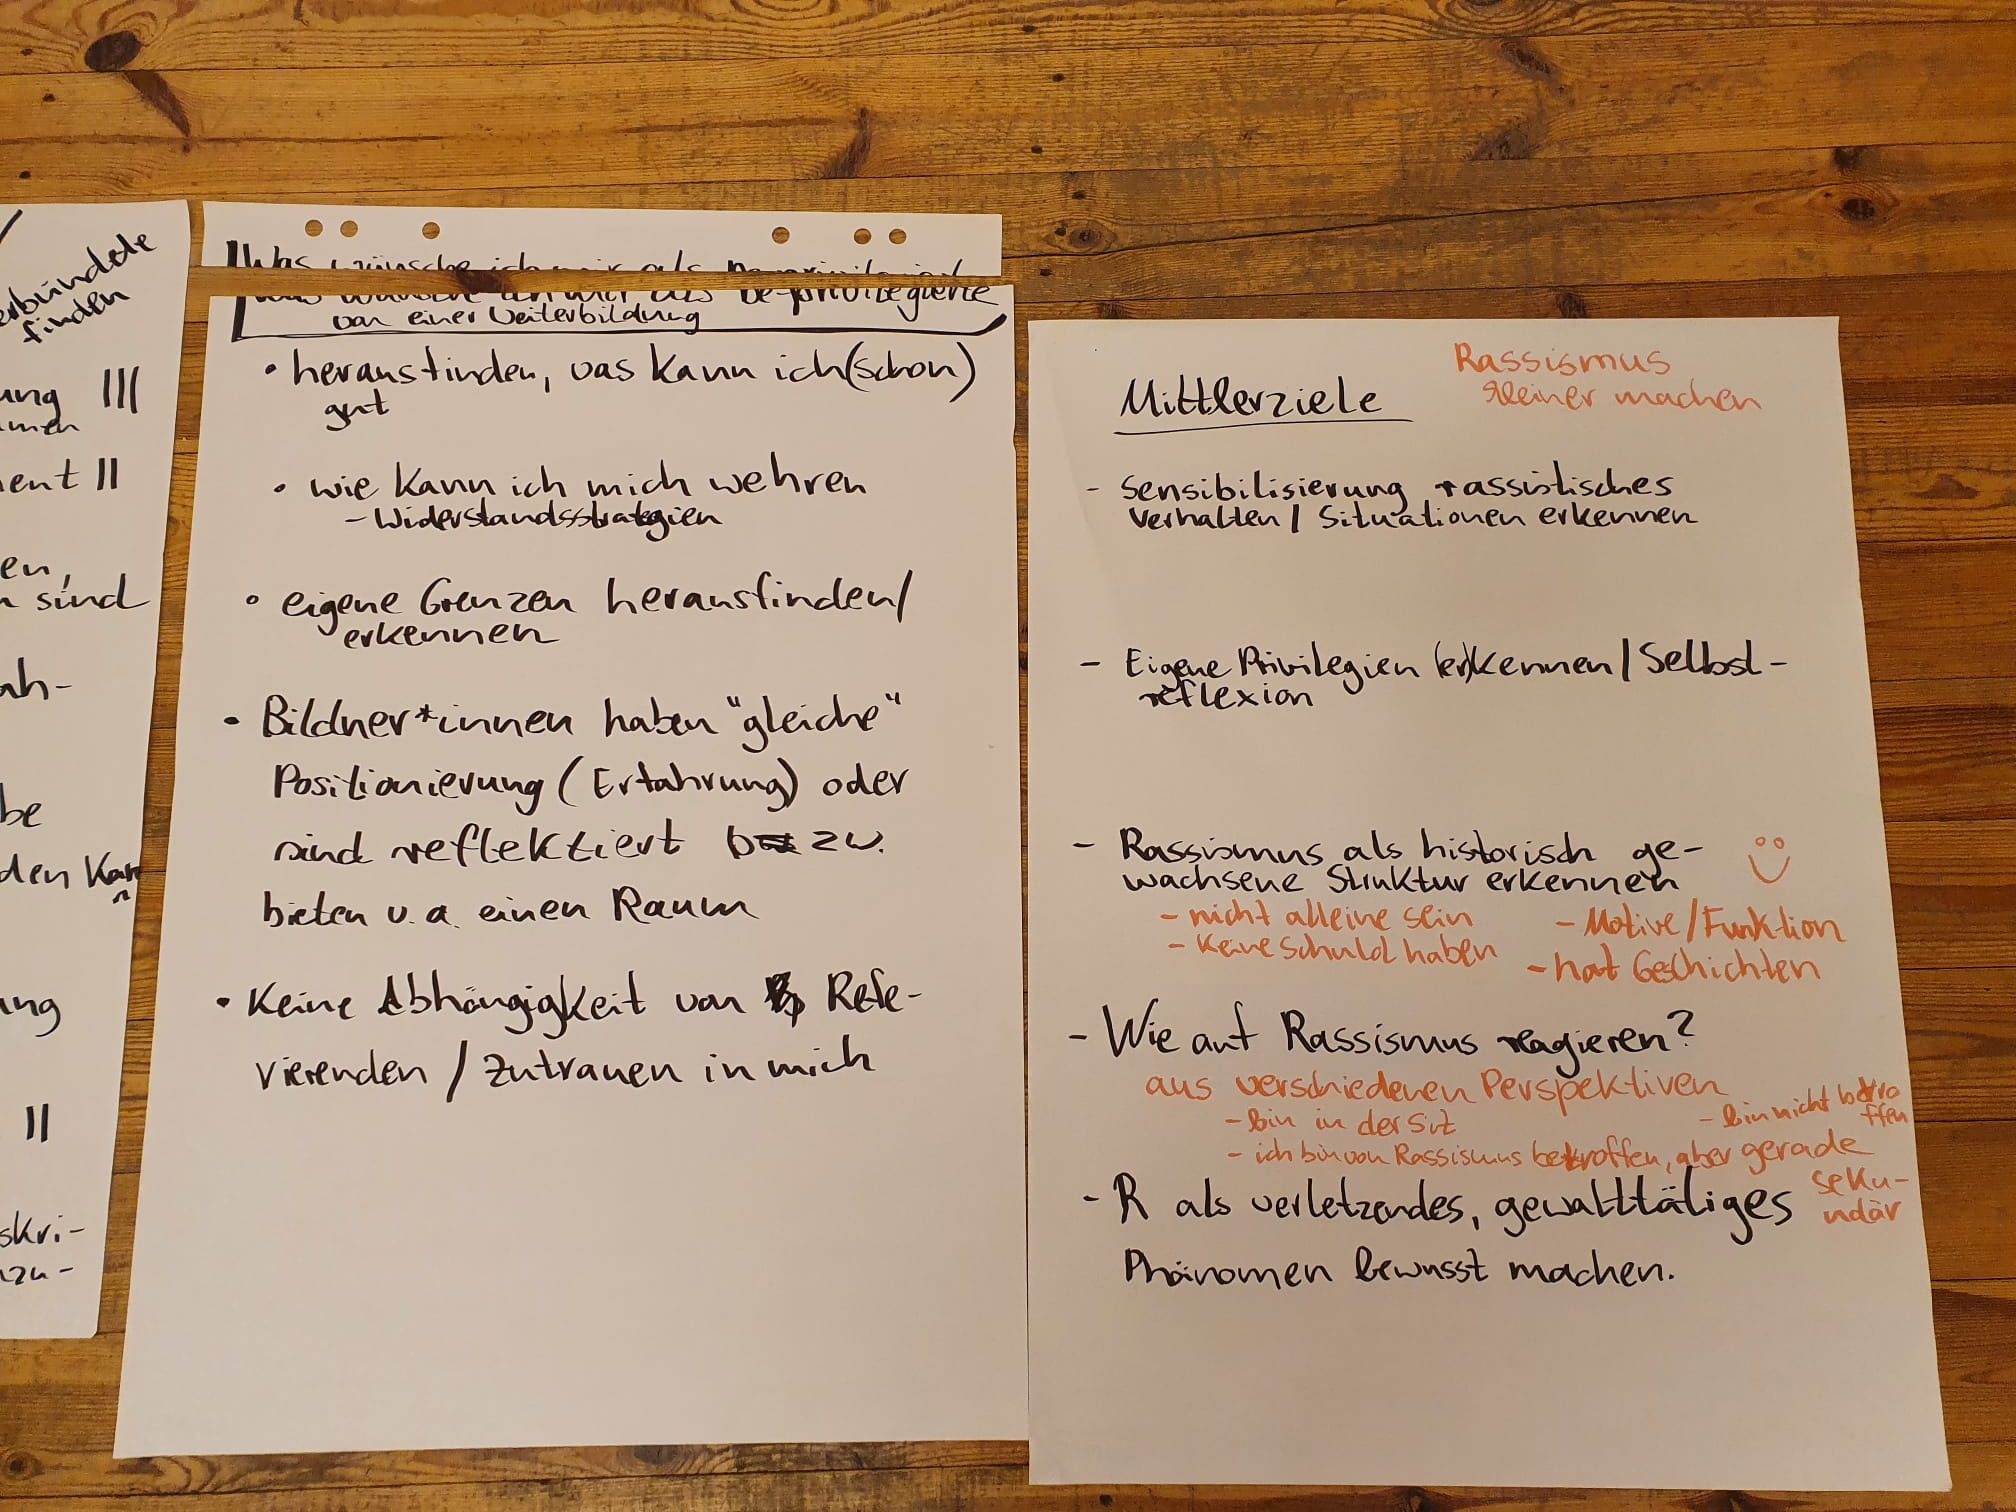 erbündete
finden
ung |||
men
ent ||
en,
sind
ah-
be
den Kan
n
ung
||
skri-
nzu-
Was wünsche ich mir als
Was wünsche ich mir als De-privilegierte
von einer Weiterbildung
• herausfinden, was kann ich (schon)
gut
• wie kann ich mich wehren
- Widerstandsstrategien
• eigene Grenzen herausfinden/
erkennen
• Bildner*innen haben "gleiche"
Positionierung (Erfahrung) oder
sind reflektiert bzw.
bieten u.a. einen Raum
• Keine Abhängigkeit von Refe-
rierenden / Zutrauen in mich
Rassismus
kleiner machen
Mittlerziele
- Sensibilisierung rassistisches
Verhalten / Situationen erkennen
- Eigene Privilegien (er)kennen / Selbst-
reflexion
- Rassismus als historisch ge-
wachsene Struktur erkennen
- nicht alleine sein - Motive / Funktion
- keine Schuld haben
- hat Geschichten
- Wie auf Rassismus reagieren?
aus verschiedenen Perspektiven
- bin in der Sit - bin nicht betro
ffen
- ich bin von Rassismus betroffen, aber gerade
seku-
ndär
- R als verletzendes, gewalttätiges
Phänomen bewusst machen.